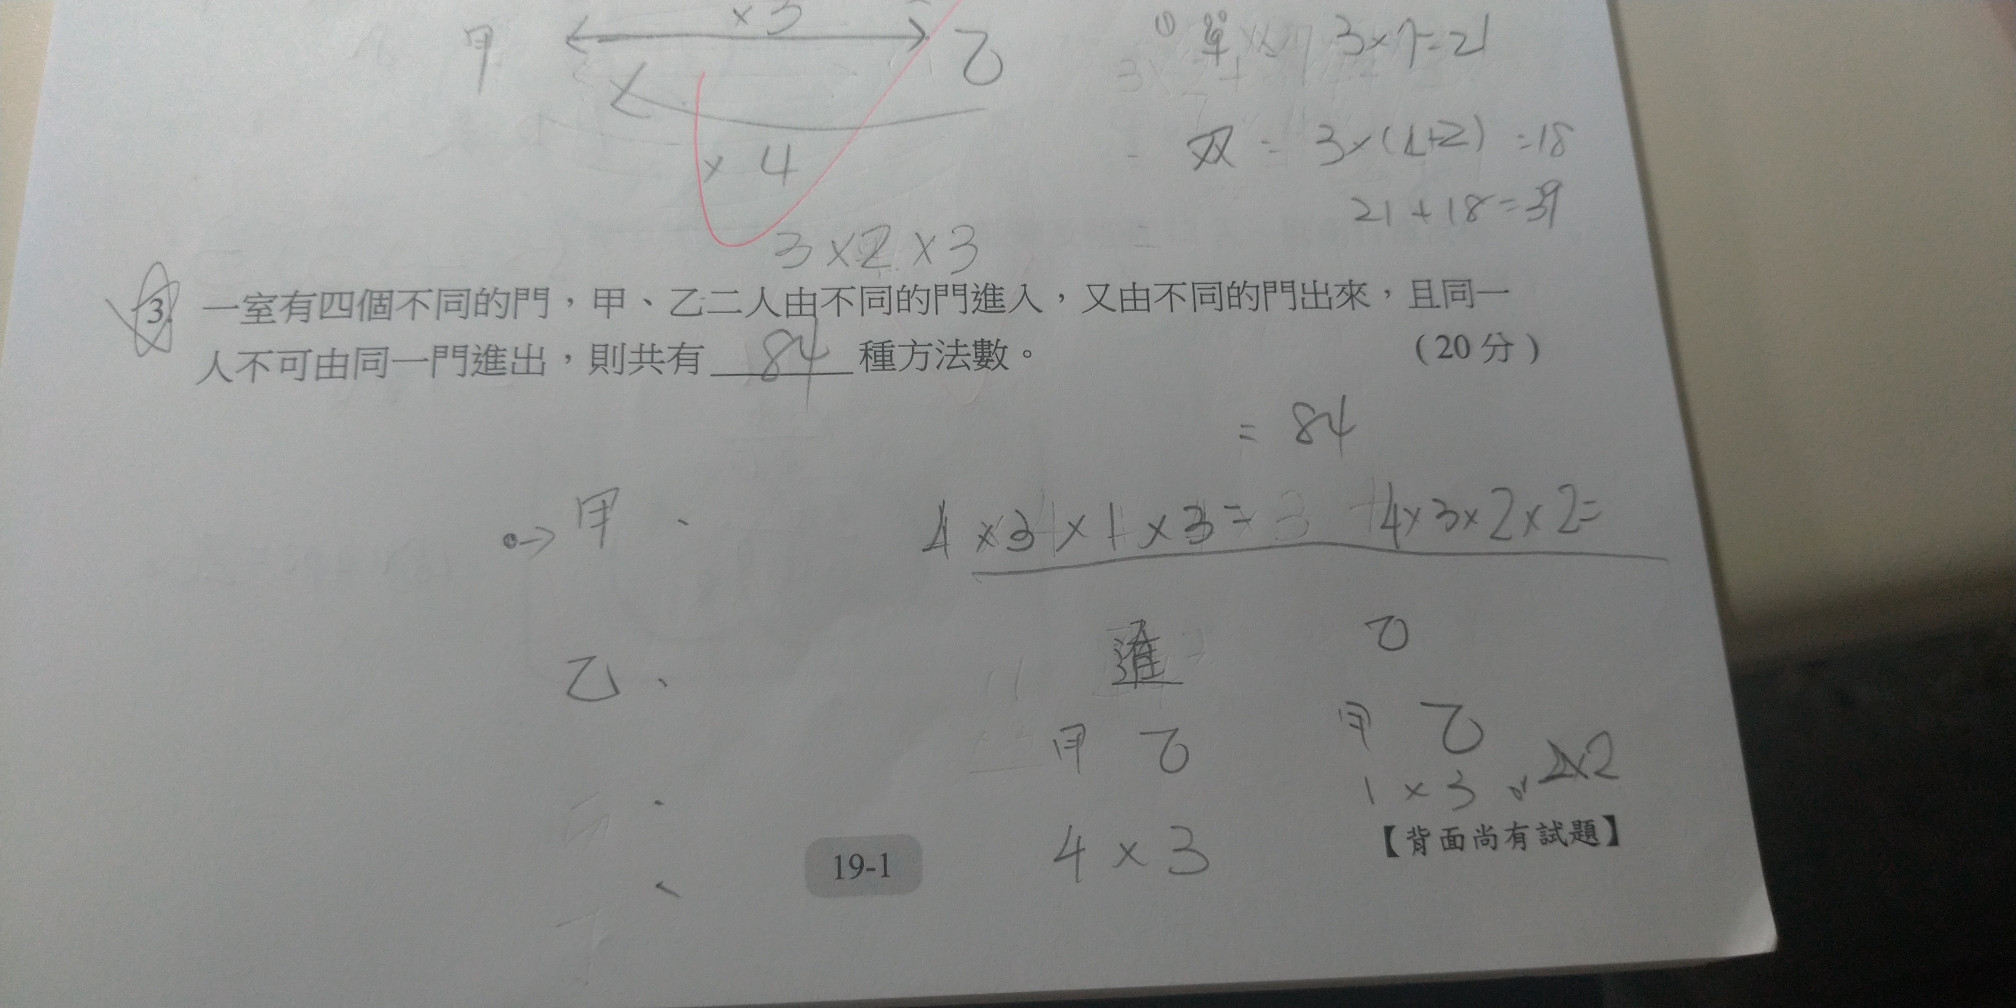 ×3
甲 乙
× 4
① 單 3×7=21
双 = 3×(4+2) =18
21+18=39
3×2×3
3. 一室有四個不同的門，甲、乙二人由不同的門進入，又由不同的門出來，且同一
人不可由同一門進出，則共有 84 種方法數。 （20 分）
= 84
甲、
4×3×1×3= + 4×3×2×2=
乙、
進
乙
甲 乙
甲 乙
1×3 or 2×2
4×3
【背面尚有試題】
19-1